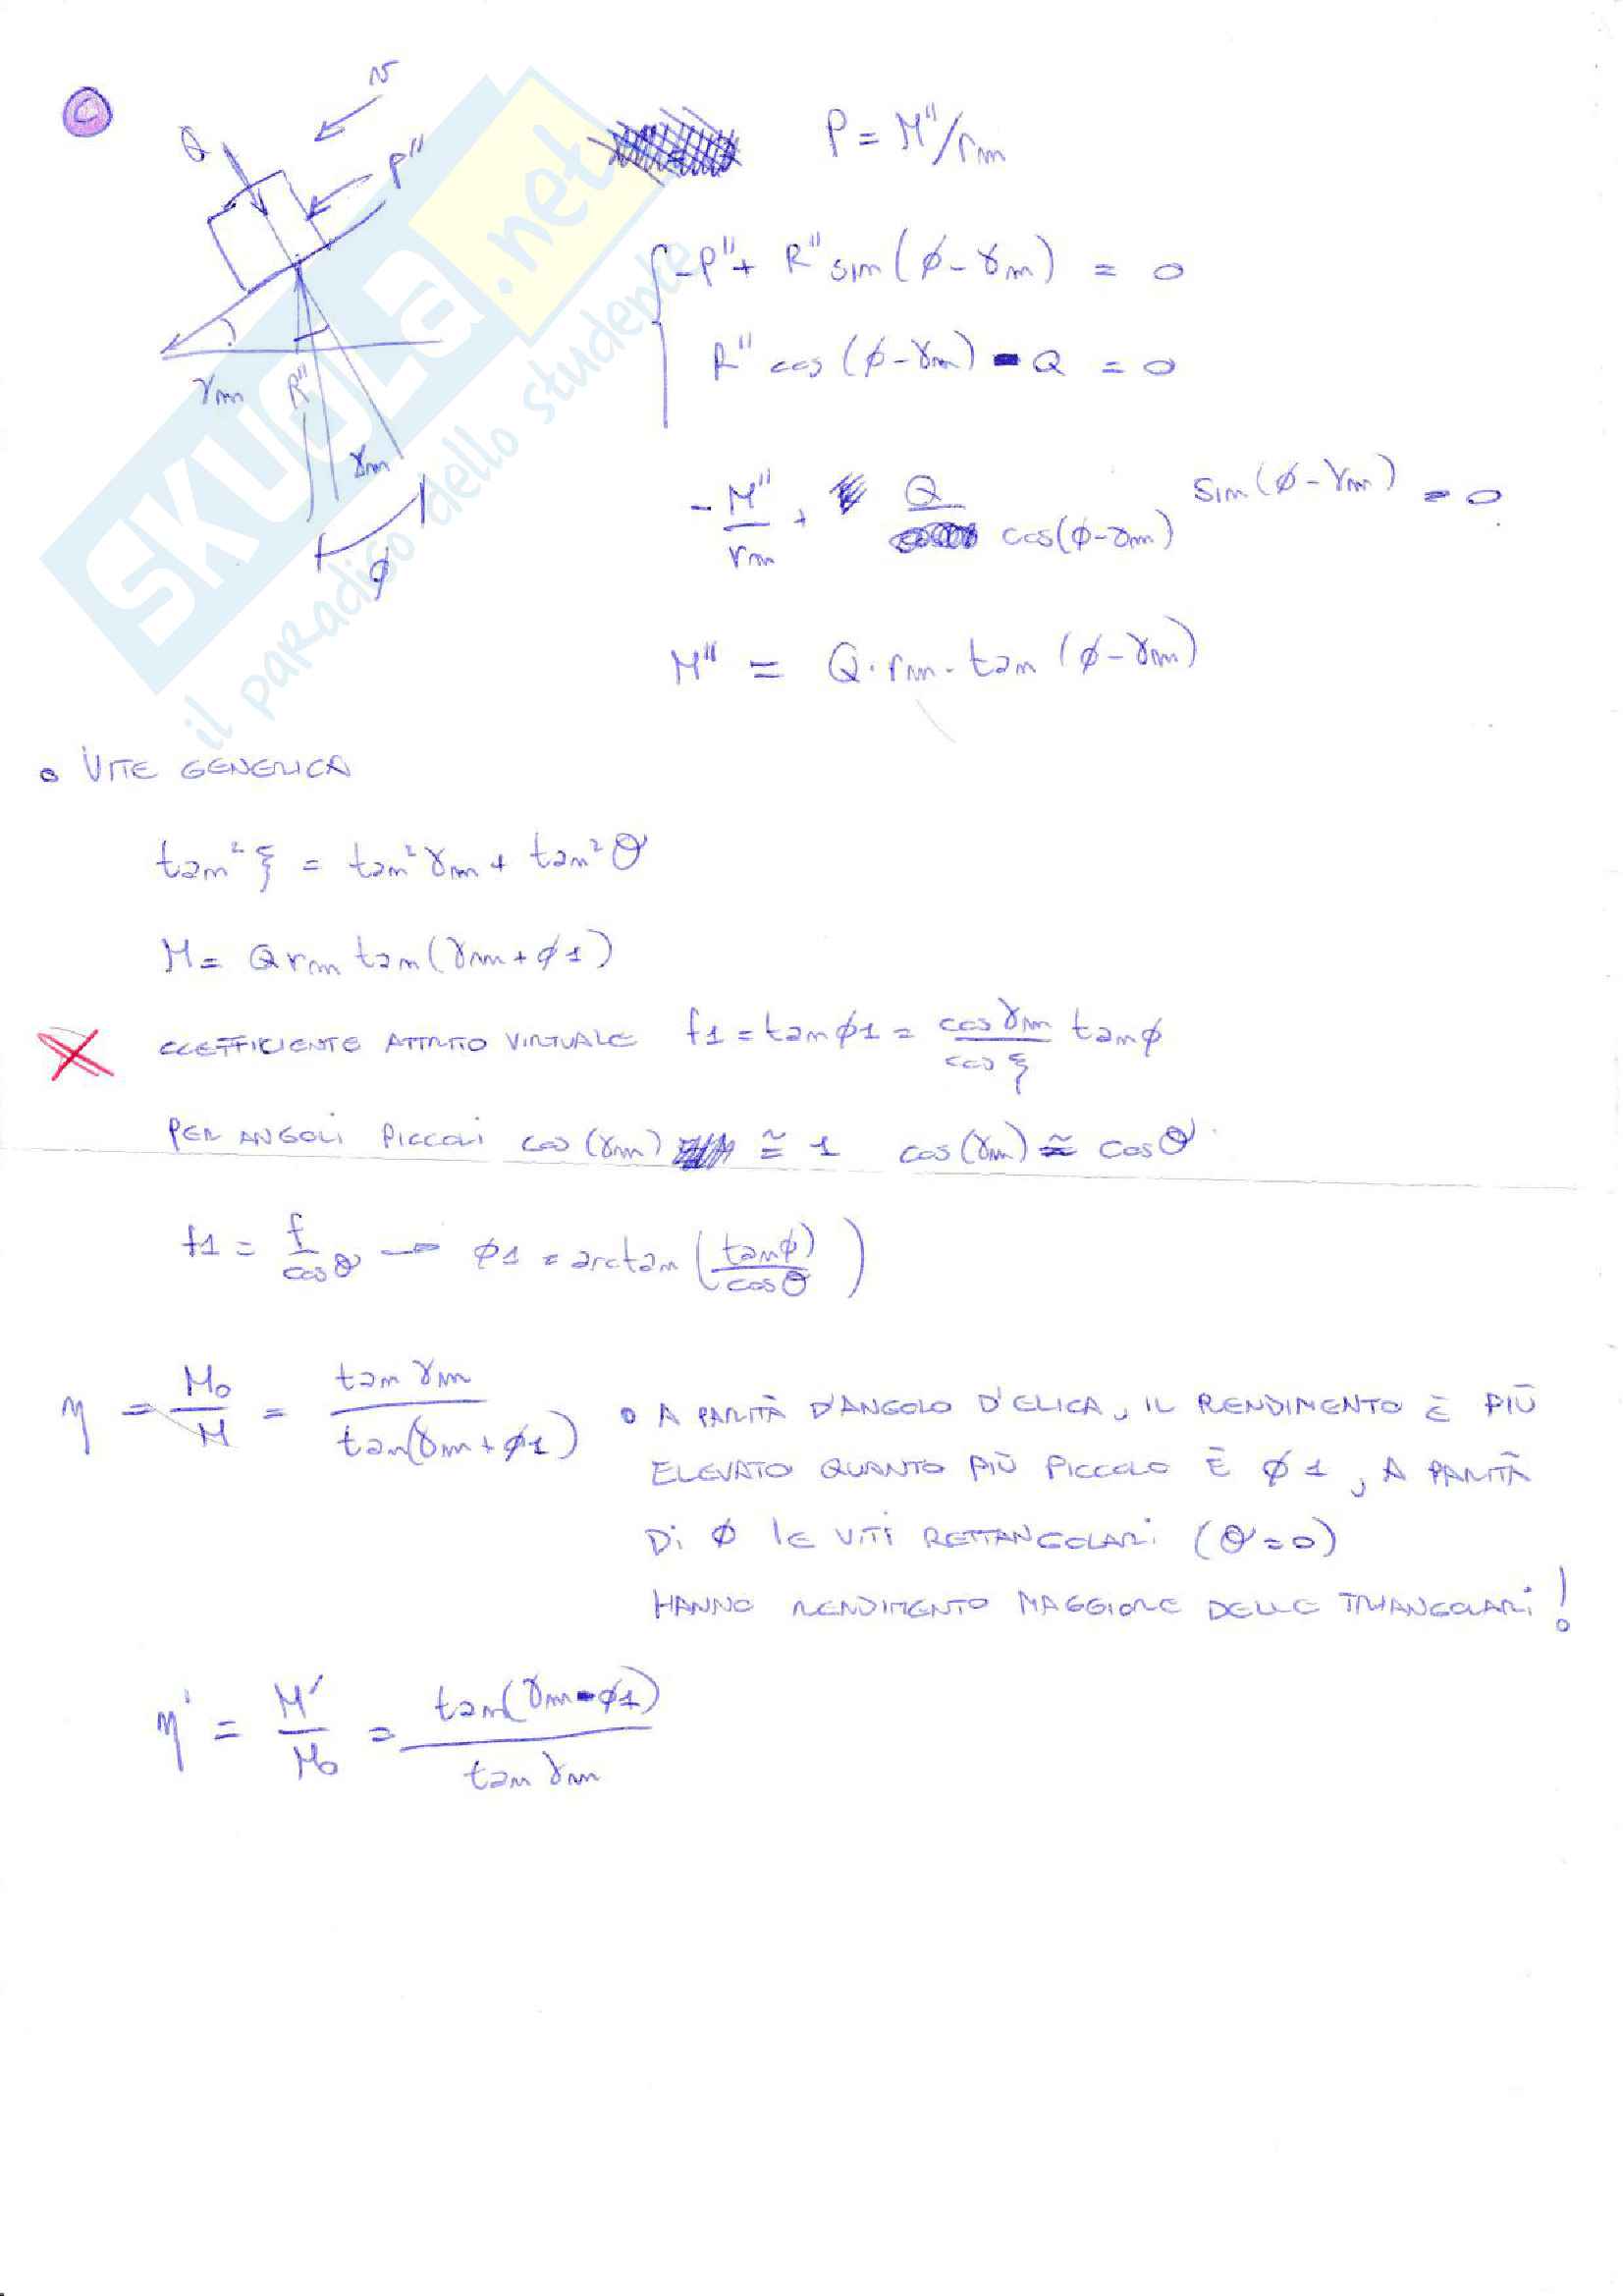 C
v
Q
P"
γm
R"
γm
φ
P = M"/rm
-P" + R" sin(φ-γm) = 0
R" cos(φ-γm) - Q = 0
- M"/rm + Q/cos(φ-γm) sin(φ-γm) = 0
M" = Q·rm·tan(φ-γm)
SKUOLA.net
il paradiso dello studente
• VITE GENERICA
tan²ξ = tan²γm + tan²θ
M = Q rm tan(γm+φ1)
COEFFICIENTE ATTRITO VIRTUALE f1 = tanφ1 = cosγm/cosξ tanφ
PER ANGOLI PICCOLI cos(γm) ≅ 1 cos(γm) ≅ cosθ
f1 = f/cosθ → φ1 = arctan(tanφ/cosθ)
η = M0/M = tan γm/tan(γm+φ1)
• A PARITÀ D'ANGOLO D'ELICA, IL RENDIMENTO È PIÙ
ELEVATO QUANTO PIÙ PICCOLO È φ1, A PARITÀ
DI φ LE VITI RETTANGOLARI (θ=0)
HANNO RENDIMENTO MAGGIORE DELLE TRIANGOLARI!
η' = M'/M0 = tan(γm-φ1)/tan γm